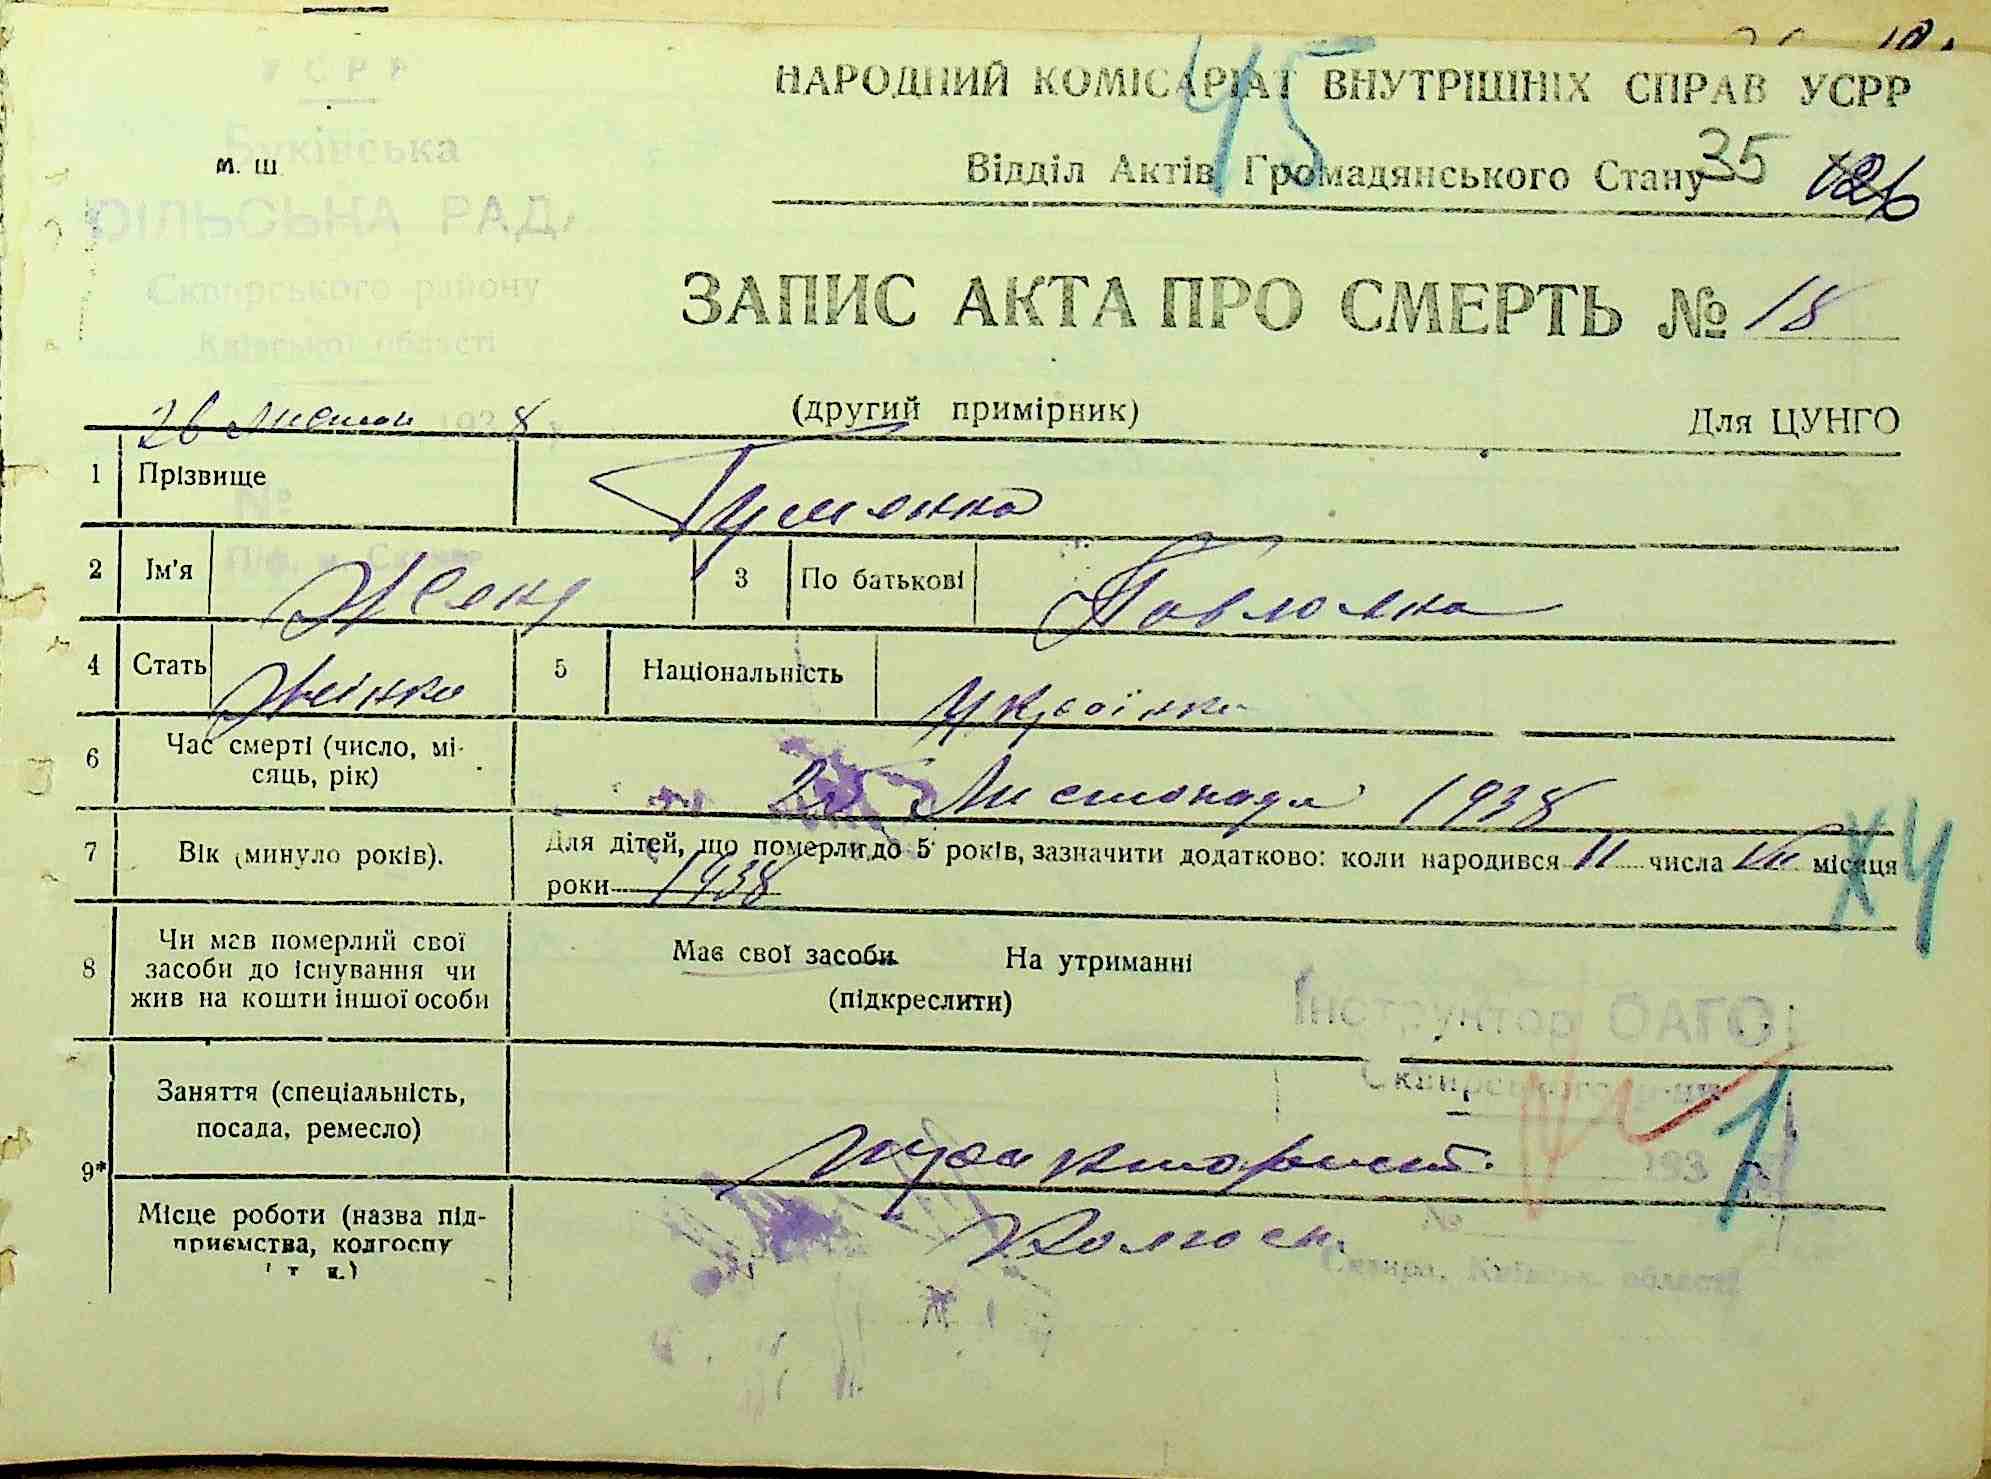 УСРР
Буківська
СІЛЬСЬКА РАДА
Сквирського району
Київської області
м. Ш
НАРОДНИЙ КОМІСАРІАТ ВНУТРІШНІХ СПРАВ УСРР
45
Відділ Актів Громадянського Стану 35 126
ЗАПИС АКТА ПРО СМЕРТЬ № 18
26 листоп 1938 р
(другий примірник)
Для ЦУНГО
№
1 Прізвище Гуменна
2 Ім'я Жені 3 По батькові Павловна
4 Стать Жінка 5 Національність Українка
6 Час смерті (число, мі-
сяць, рік) 25 Листопада 1938
7 Вік (минуло років). Для дітей, що померли до 5 років, зазначити додатково: коли народився 11 числа VII місяця
роки 1938
Х4
8 Чи мав померлий свої
засоби до існування чи
жив на кошти іншої особи
Має свої засоби На утриманні
(підкреслити)
Інструктор ОАГС
Сквирського
9* Заняття (спеціальність,
посада, ремесло) тракторист.
193
1
№
Місце роботи (назва під-
приємства, колгоспу
і т. н.)
Сквира, Київськ. області